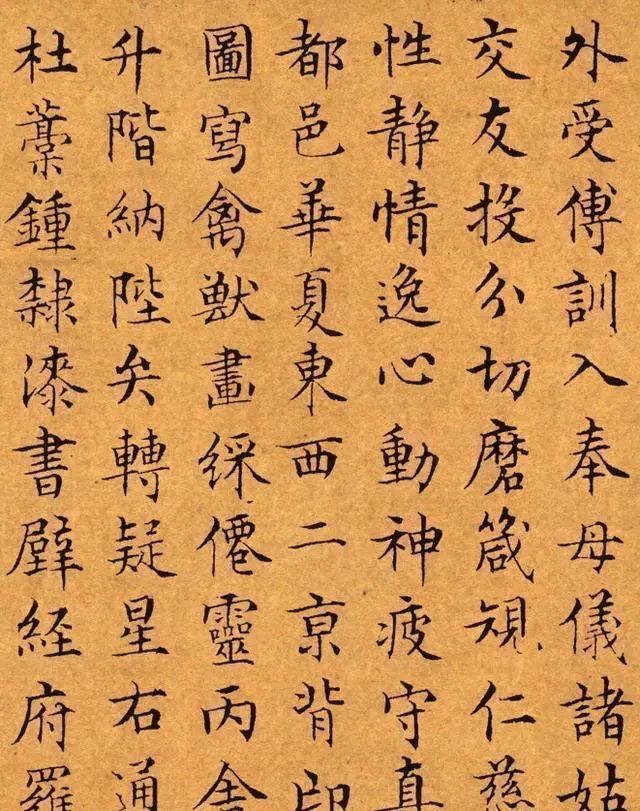 外受傅訓入奉母儀諸姑
交友投分切磨箴規仁慈
性静情逸心動神疲守真
都邑華夏東西二亰背邙
圖寫禽獸畫綵僊靈丙舍
升階納陛弁轉疑星右通
杜藁鍾隸漆書壁経府羅